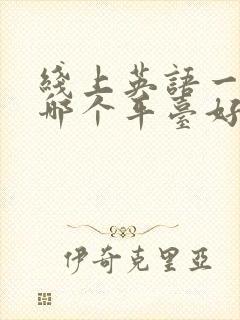 綫上英語一
哪个平臺好
伊奇克里亞